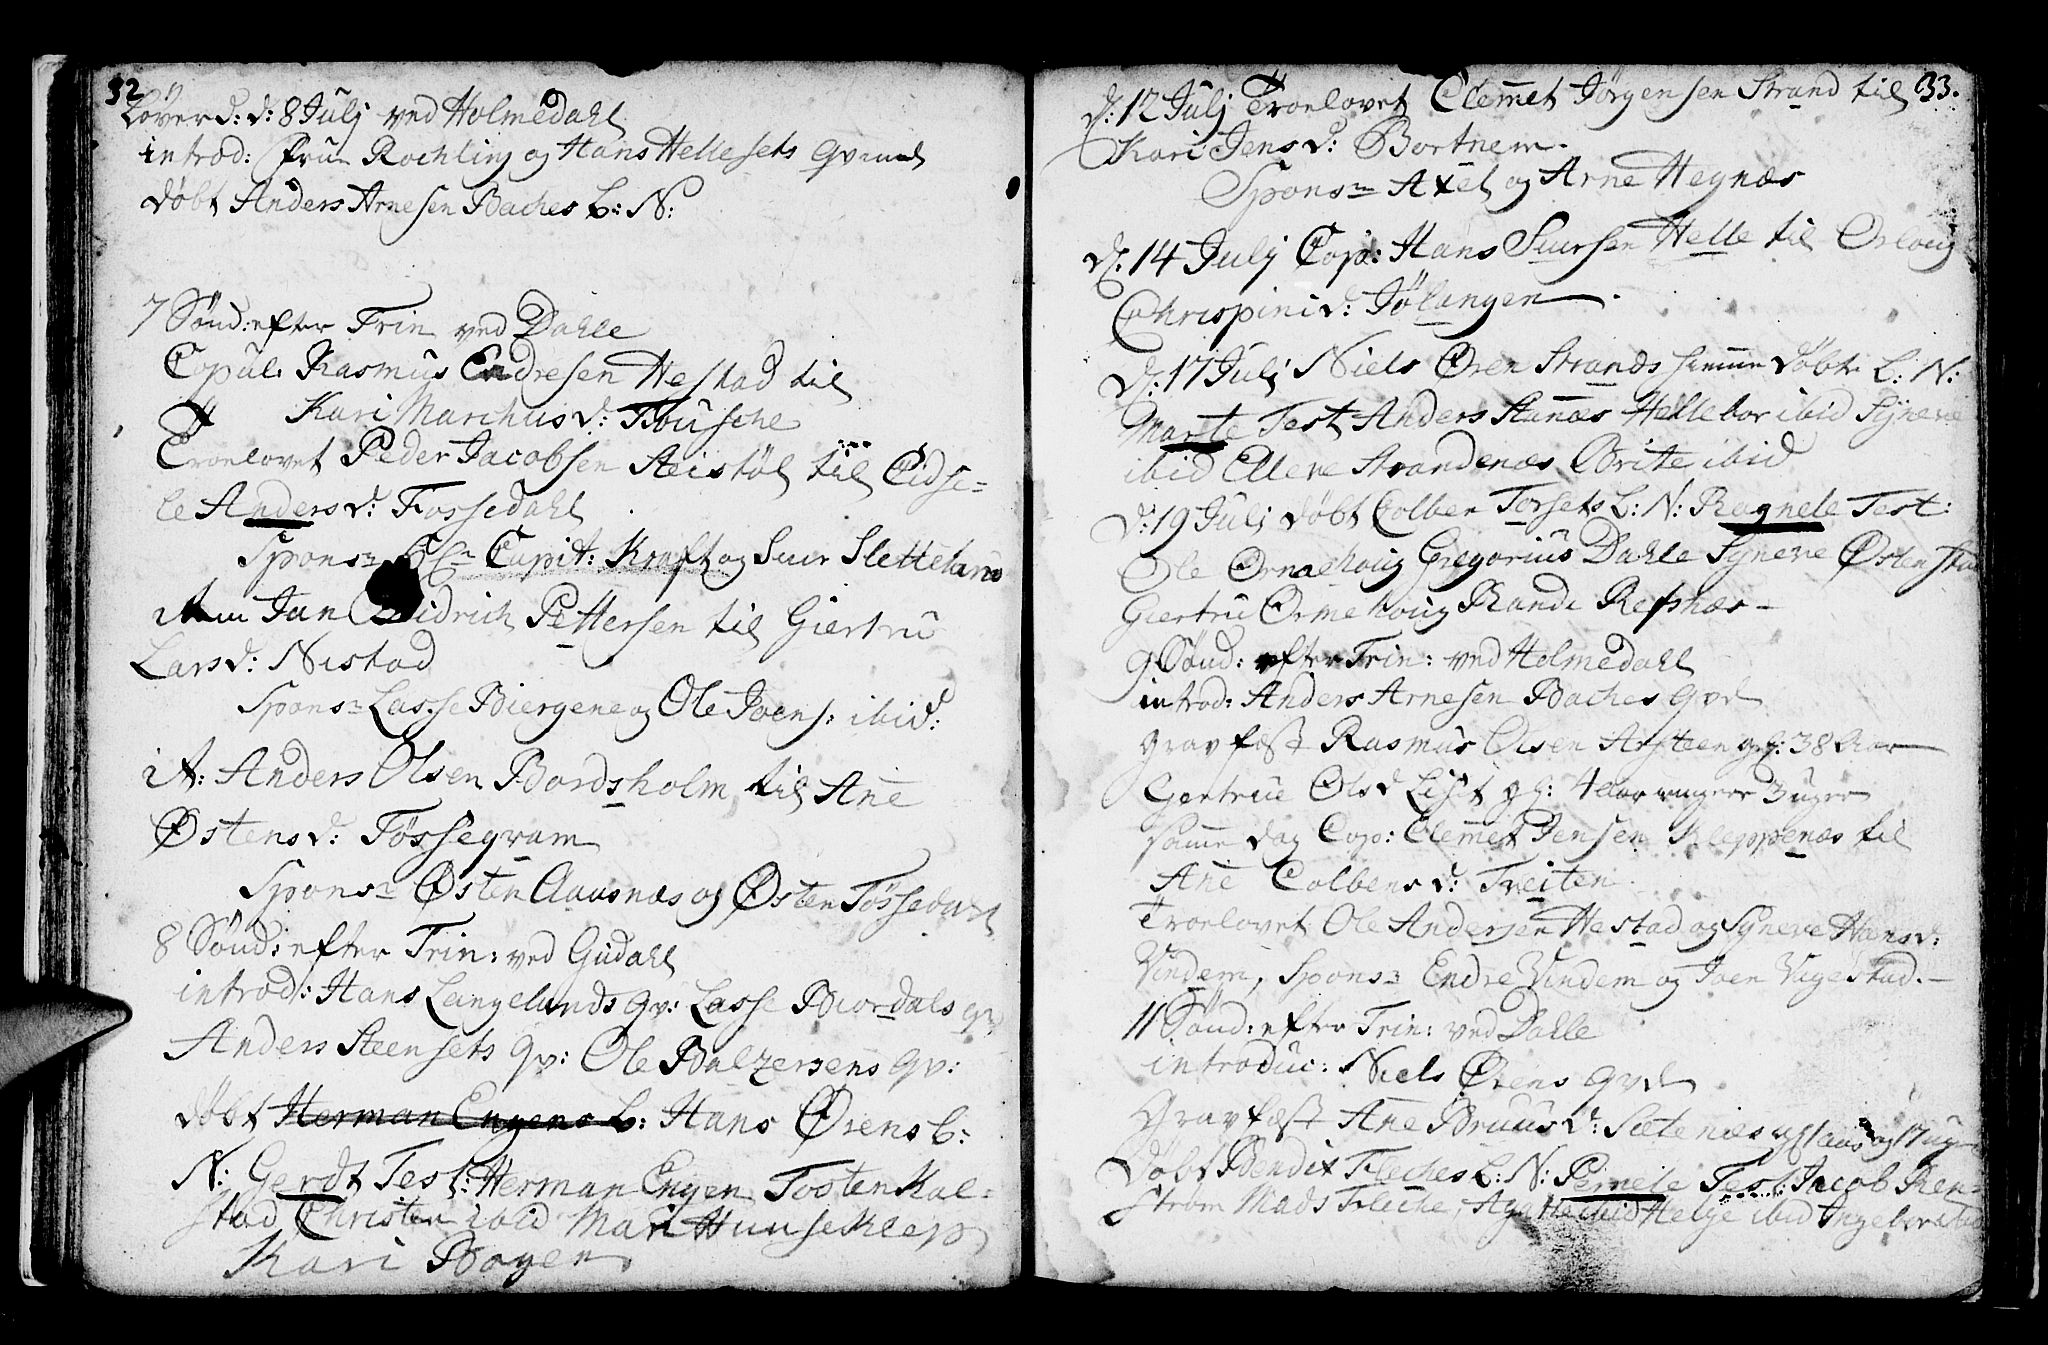 32
Løverd: d: 8 Julj ved Holmedahl
introd: fru Rochling og Hans Hellesets qvind
døbt Anders Arnesen Baches b: N:
7 Sønd: efter Trin ved Dahle
Copul: Rasmus Endresen Hestad til
Kari Marchusd: Tousche
Troelovet Peder Jacobsen Steistøl til Eidse=
le Andersd: Fossedahl
Spons: Capit: Kraft og Siur Sletteland
item Jan Didrich Pettersen til Giertru
Larsd: Nistad
Spons: Lasse Biergene og Ole Joens: ibid:
it: Anders Olsen Bordsholm til Ane
Østensd: Tøssegram
Spons: Østen Aausnæs og Østen Tøssedahl
8 Sønd: efter Trin: ved Gudahl
introd: Hans Langelands qv: Lasse Biordals qv:
Anders Steensets qv: Ole Balzersens qv:
døbt Herman Engens b: Hans Ørens b:
N: Gerdt Test: Herman Engen Tosten Kal=
stad Christen ibid Mari Huuseklep
Kari Bogen
33.
d: 12 Julj Troelovet Clemet Jørgensen Strand til
Kari Jensd: Bortnem.
Spons: Axel og Arne Hegnæs
d: 14 Julj Cop: Hans Siursen Helle til Orloug
Chrispinid: Jølangen
d: 17 Julj Niels Øren Strands hiemme døbt b: N:
Marte Test Anders Stanæs Hellebor ibid Synneve
ibid Elleve Strandenæs Brite ibid
d: 19 Julj døbt Colben Torsets b: N: Ragnele Test:
Ole Ornehoug Gregorius Dahle Syneve Østenstad
Giertru Ormehoug Rande Refsnæs
9 Sønd: efter Trin: ved Holmedahl
introd: Anders Arnesen Baches qvd
gravfæst Rasmus Olsen Arsteen gl: 38 Aar
Gertrue Olsd List gl: 4 Aar 3 uger
samme dag Cop: Clemet Jensen Kleppenæs til
Ane Colbensd: Treiten
Troelovet Ole Andersen Hestad og Syneve Hansd:
Vindem, Spons: Endre Vindem og Joen Vigestad.
11 Sønd: efter Trin: ved Dahle
introduc: Niels Ørens qvd
Gravfæst Ane Bruusd: Sætenæs gl 1 aar og 17 ug
Døbt Bendix Fleches b: N: Pernele Test: Jacob Ren=
strøm Mads Fleche, Agathe ibid Helge ibid Ingebor ibid